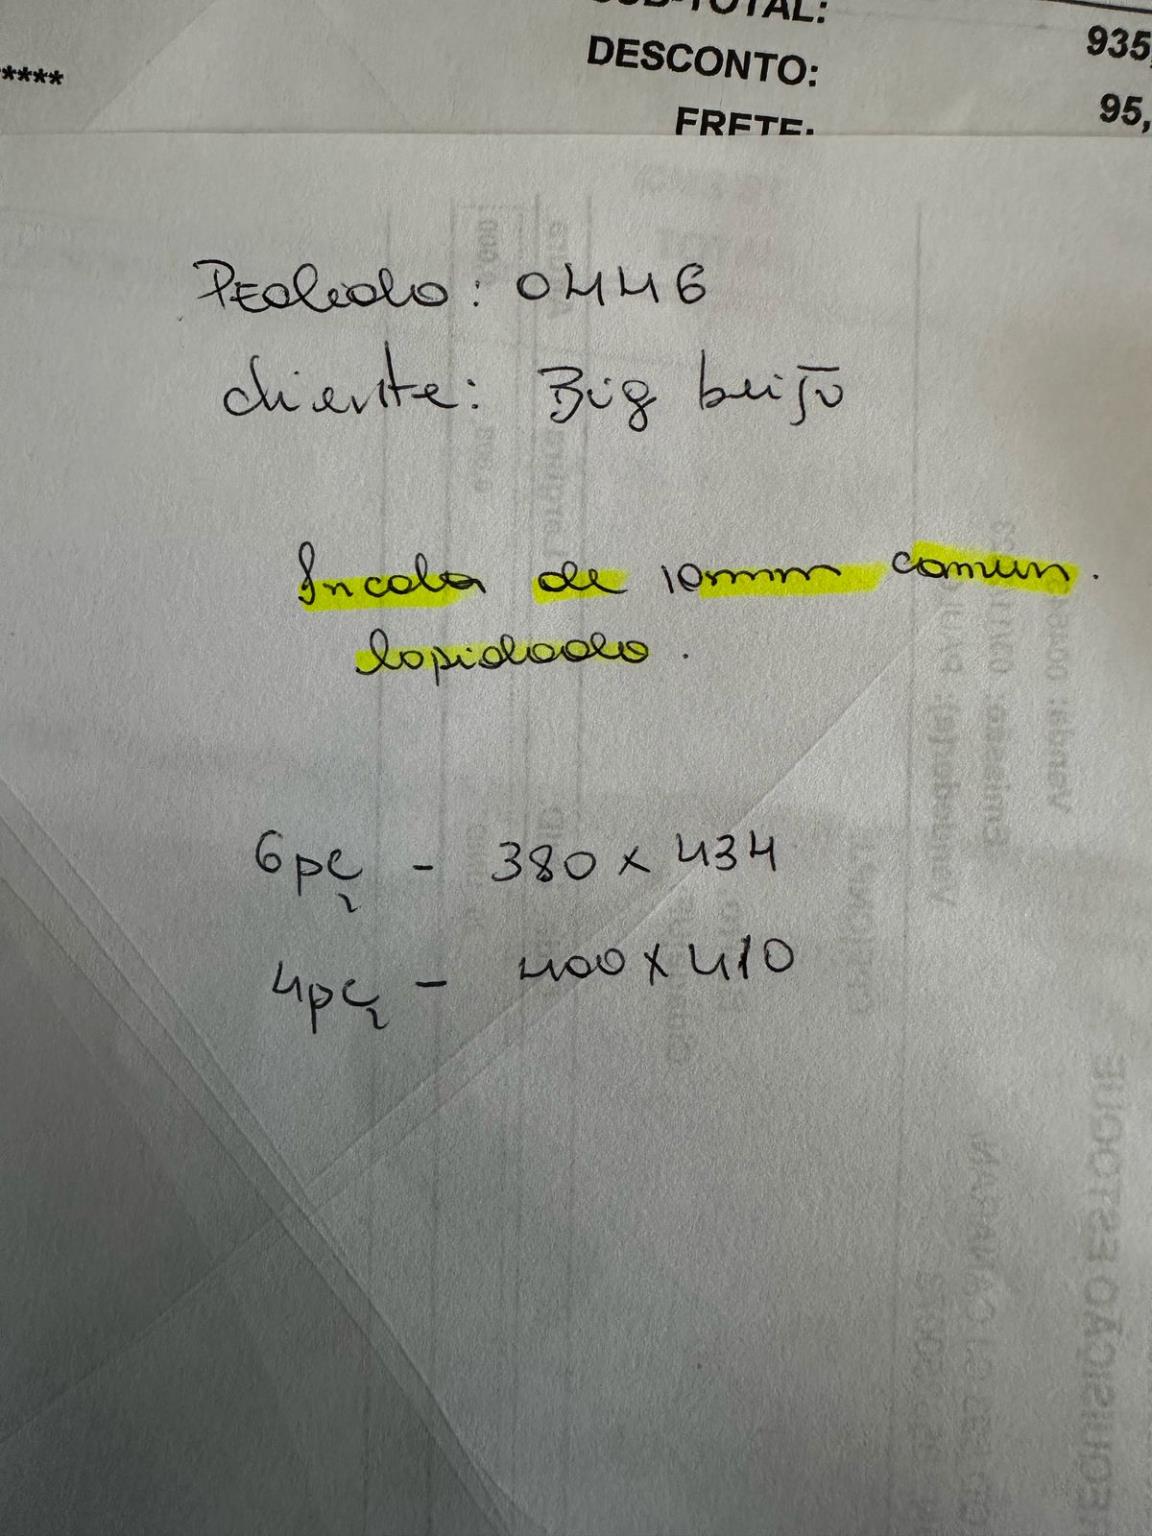 SUB-TOTAL: 935,
DESCONTO: 95,
*****
FRETE:
Pedido: 0446
cliente: Big beijo
Incolor de 10mm comum.
lapidado.
6pç - 380 x 434
4pç - 400 x 410